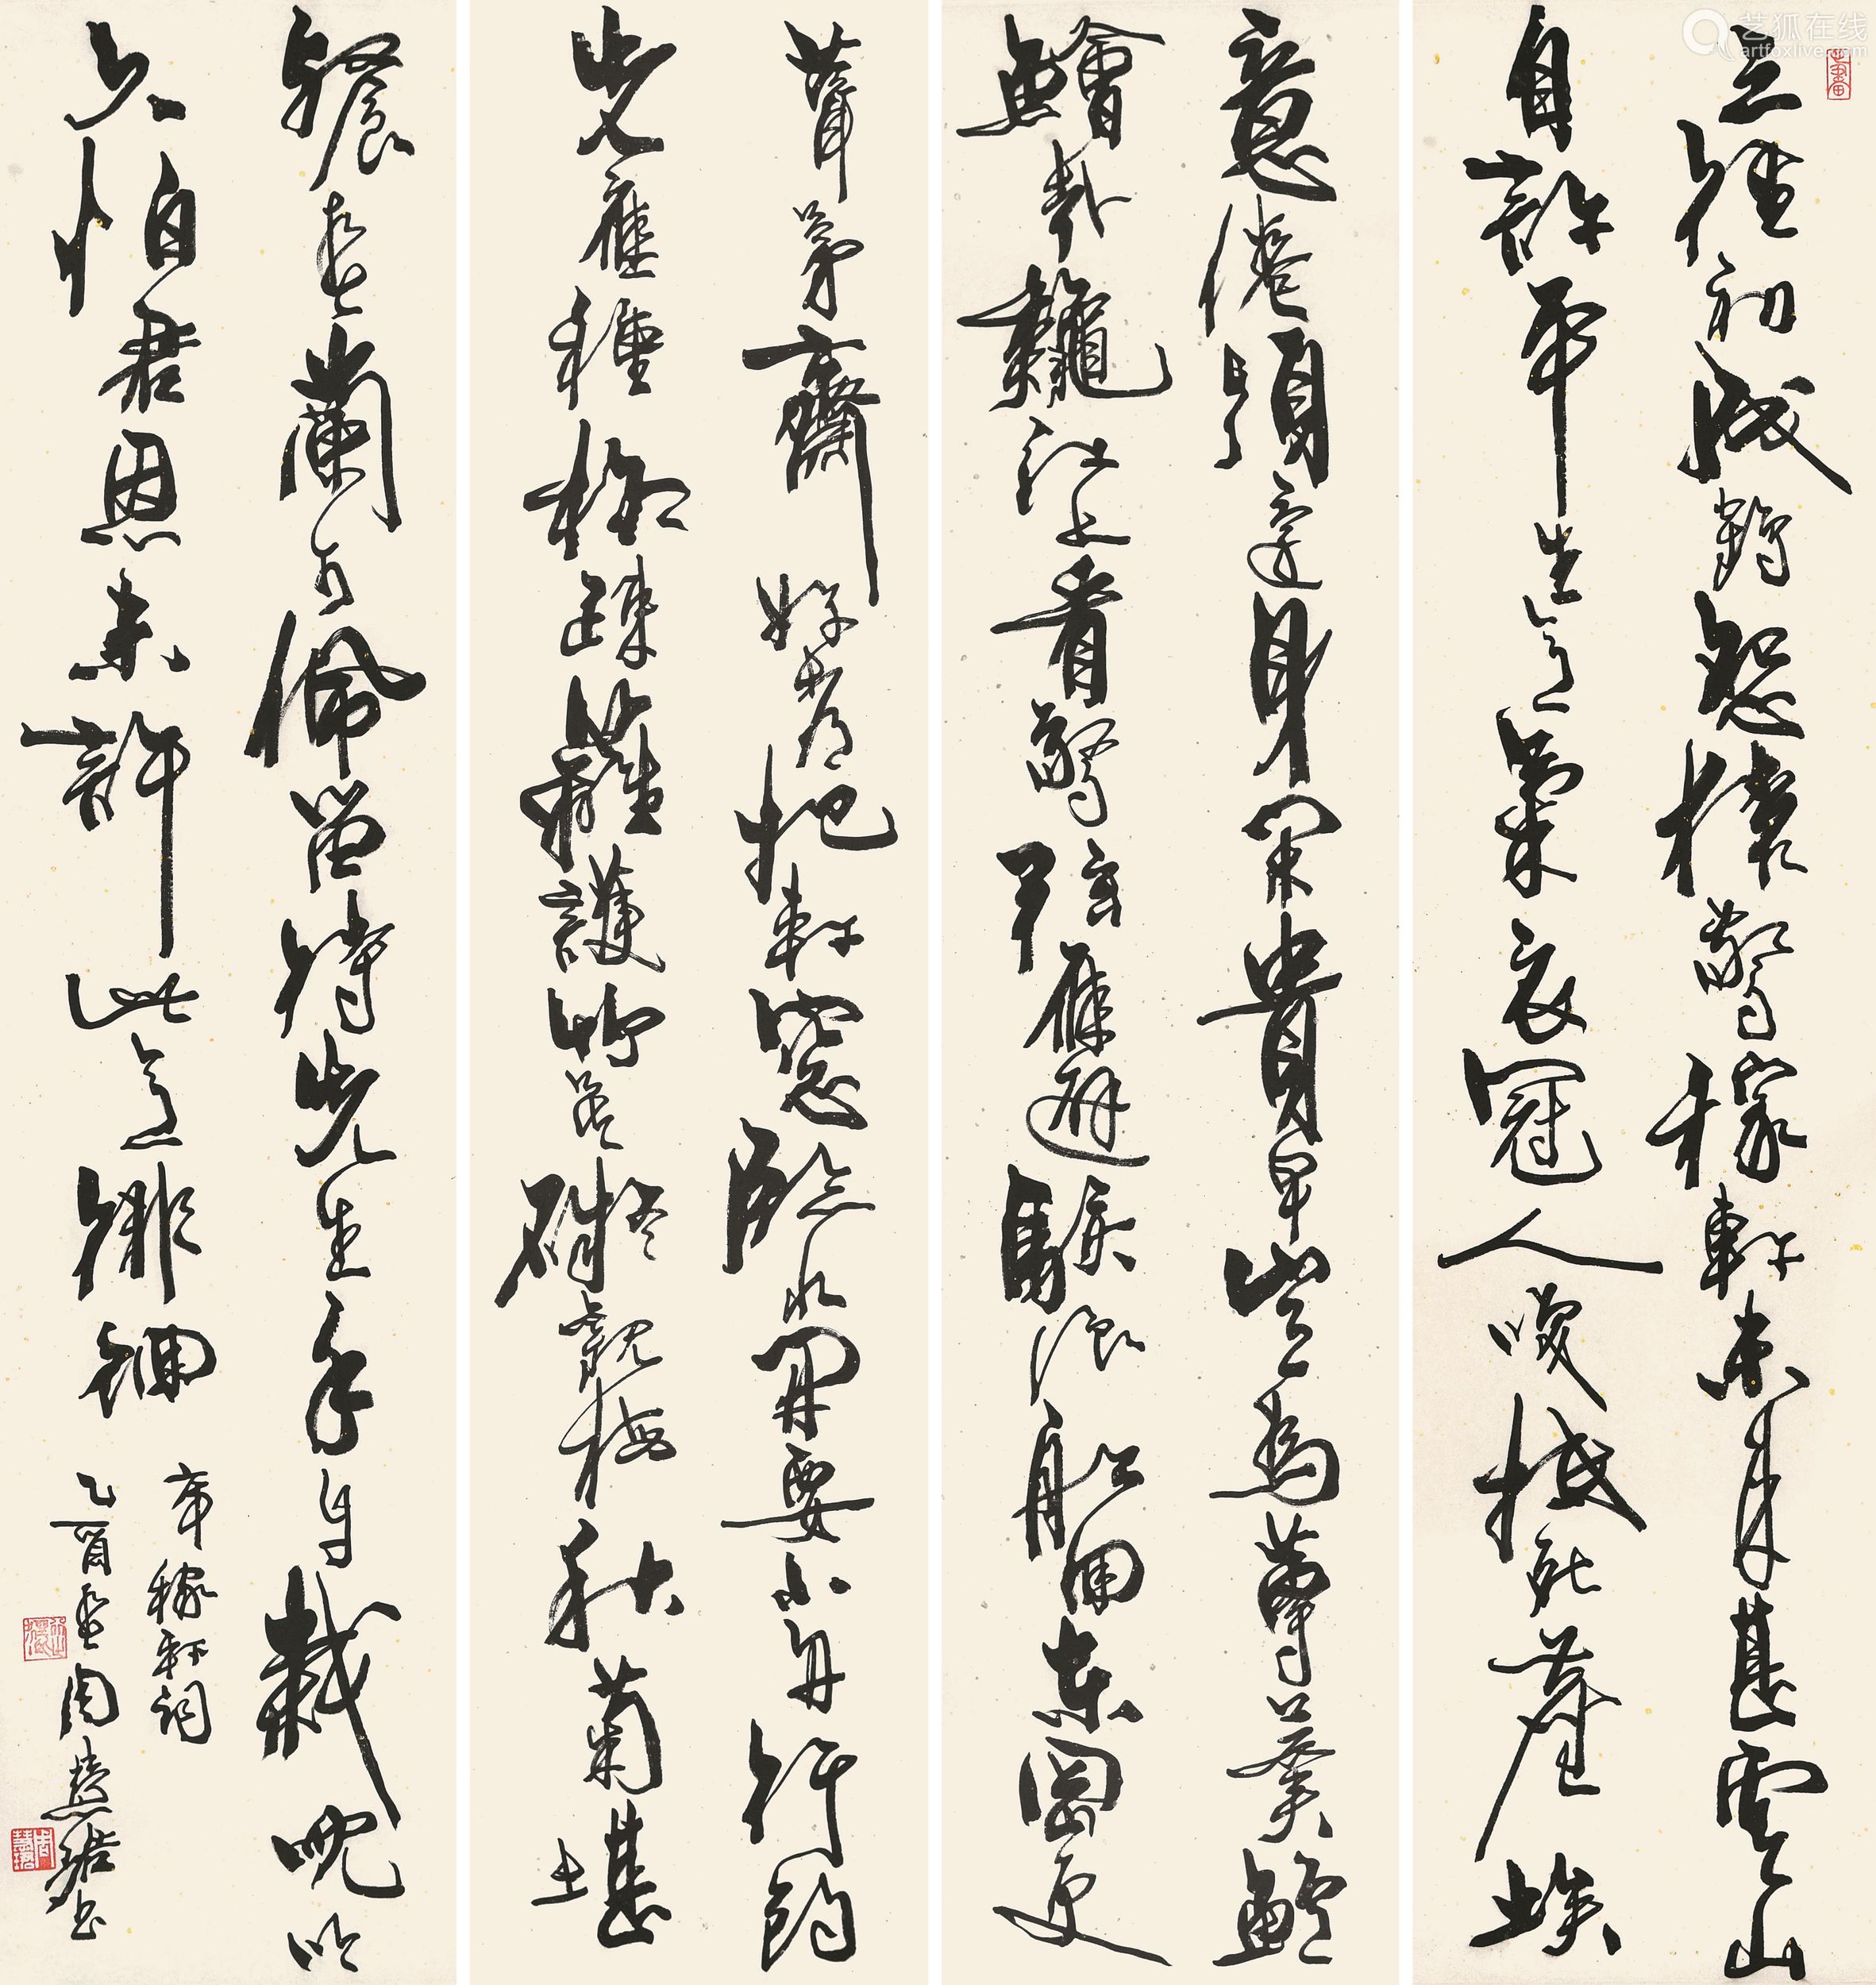 三徑初成鶴怨猿驚稼軒未来甚雲山
自許平生意氣衣冠人咲抵死塵埃
意倦須還身閑貴早豈為蓴羹鱸
鱠哉龝江上看驚弦雁避駭浪船回東岡更
葺茅齋好都把軒窓臨水開要小舟行釣
先應種柳疎籬護竹莫礙觀梅秋菊堪
餐春蘭可佩留待先生手自栽沈吟
久怕君恩未許此意徘徊
辛稼軒詞
乙酉周慧珺書
艺狐在线
artfoxlive.com